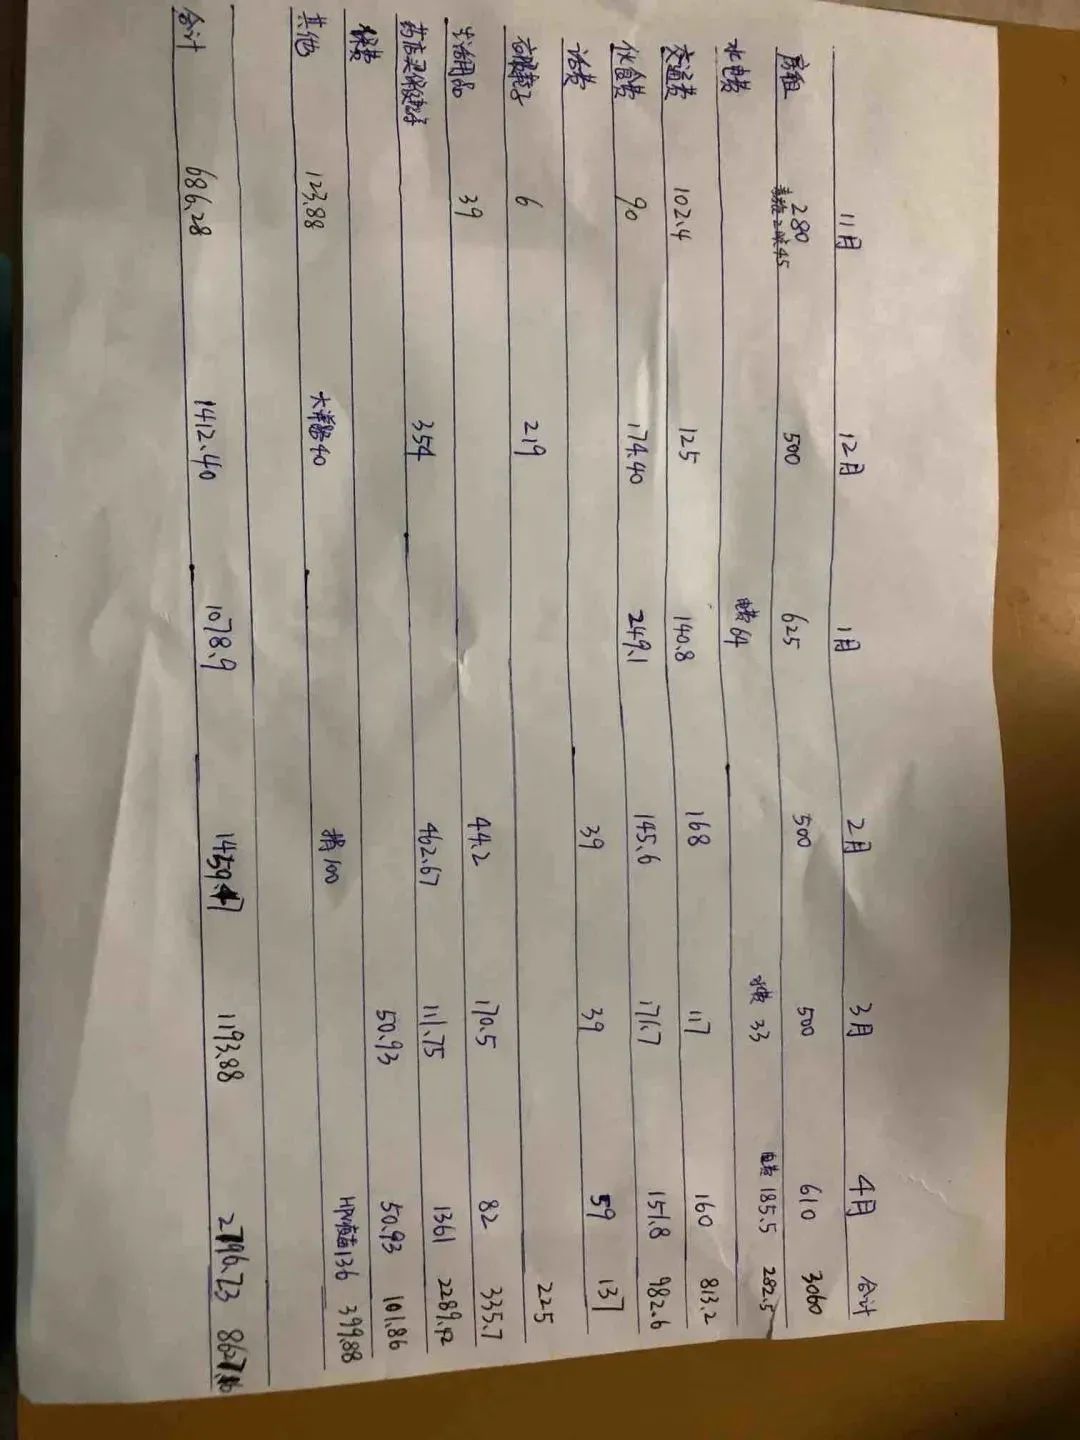 11月 12月 1月 2月 3月 4月 合计
房租 280 500 625 500 500 610 3060
2 45
水电费 电费64 水费 33 电费 185.5 282.5
交通费 102.4 125 140.8 168 117 160 813.2
伙食费 90 174.40 249.1 145.6 171.7 151.8 982.6
话费 39 39 59 137
衣服鞋子 6 219 225
生活用品 39 44.2 170.5 82 335.7
药店买保健 354 462.67 111.75 1361 2289.42
保费 50.93 50.93 101.86
其他 123.88 40 捐100 HPV疫苗136 399.88
合计 686.28 1412.40 1078.9 1459.47 1193.88 2796.23